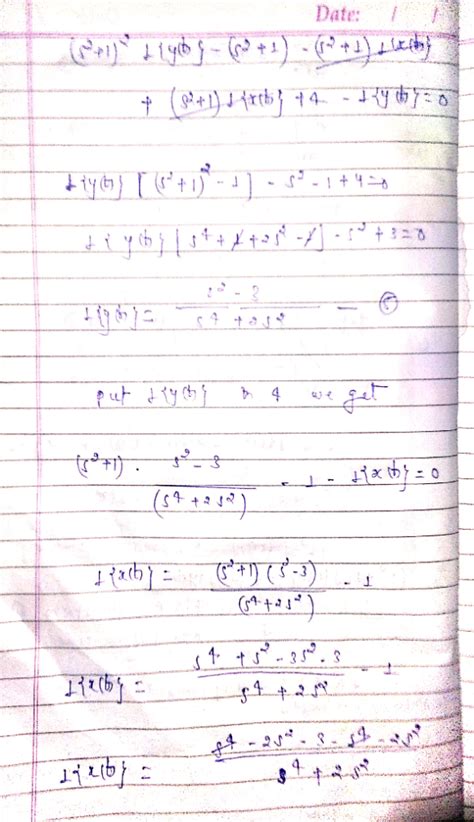 Date: / /
(s²+1)² L{y(t)} - (s²+1) - (s²+1) L{x(t)}
+ (s²+1) L{x(t)} + 4 - L{y(t)} = 0
L{y(t)} [(s²+1)² - 1] - s² - 1 + 4 = 0
L{y(t)} [s⁴ + 1 + 2s² - 1] - s² + 3 = 0
L{y(t)} = (s² - 3)/(s⁴ + 2s²) — ⑤
put L{y(t)} in 4 we get
(s²+1) · (s² - 3)/(s⁴ + 2s²) - 1 - L{x(t)} = 0
L{x(t)} = (s²+1)(s²-3)/(s⁴+2s²) - 1
L{x(t)} = (s⁴ + s² - 3s² - 3)/(s⁴ + 2s²) - 1
L{x(t)} = (s⁴ - 2s² - 3 - s⁴ - 2s²)/(s⁴ + 2s²)